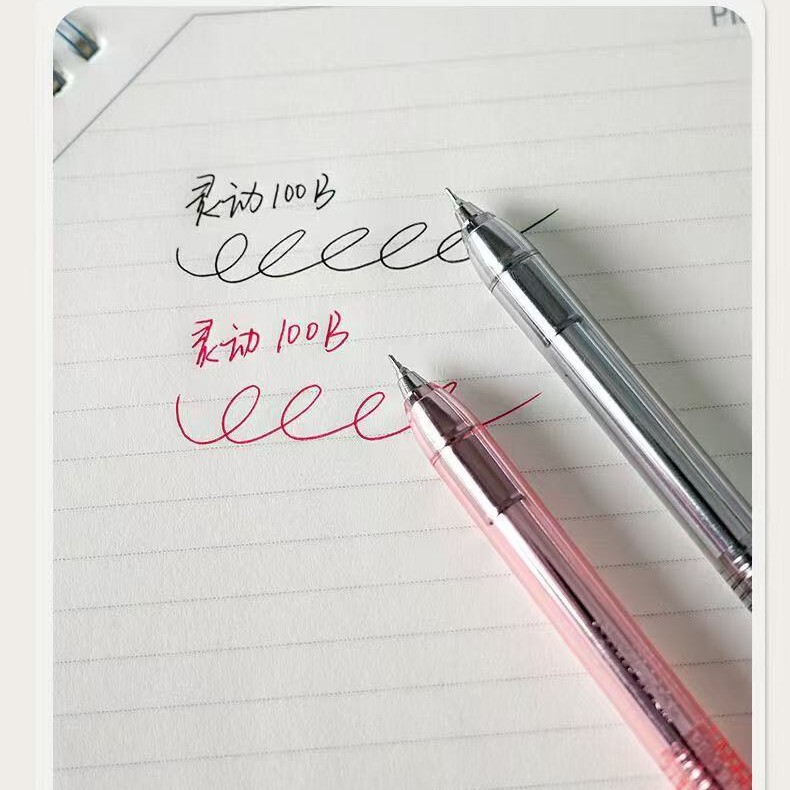 灵动100B
灵动100B